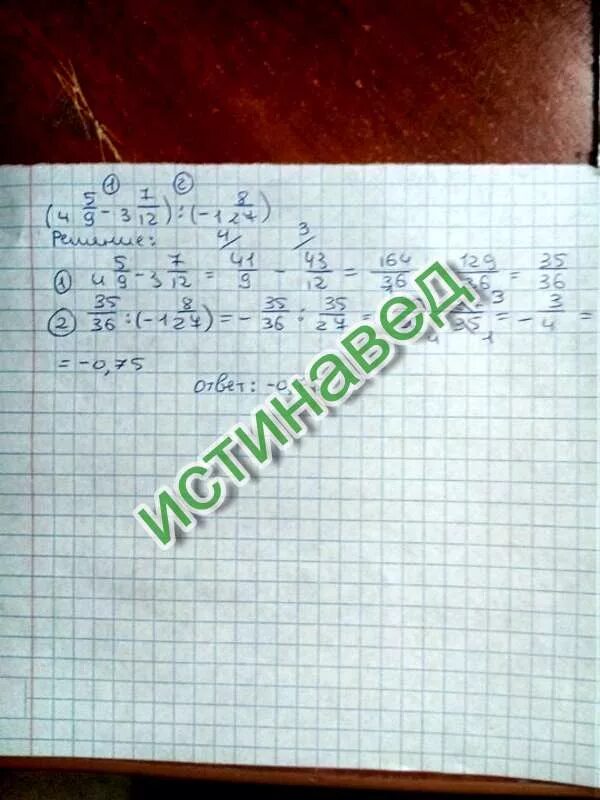 ① ②
(4 5/9 - 3 7/12) : (-1 8/27)
Решение:
① 4 5/9 - 3 7/12 = 41/9 - 43/12 = 164/36 129/36 = 35/36
② 35/36 : (-1 8/27) = - 35/36 : 35/27 = = - 3/4 =
= -0,75
ответ: -0,
истинавед